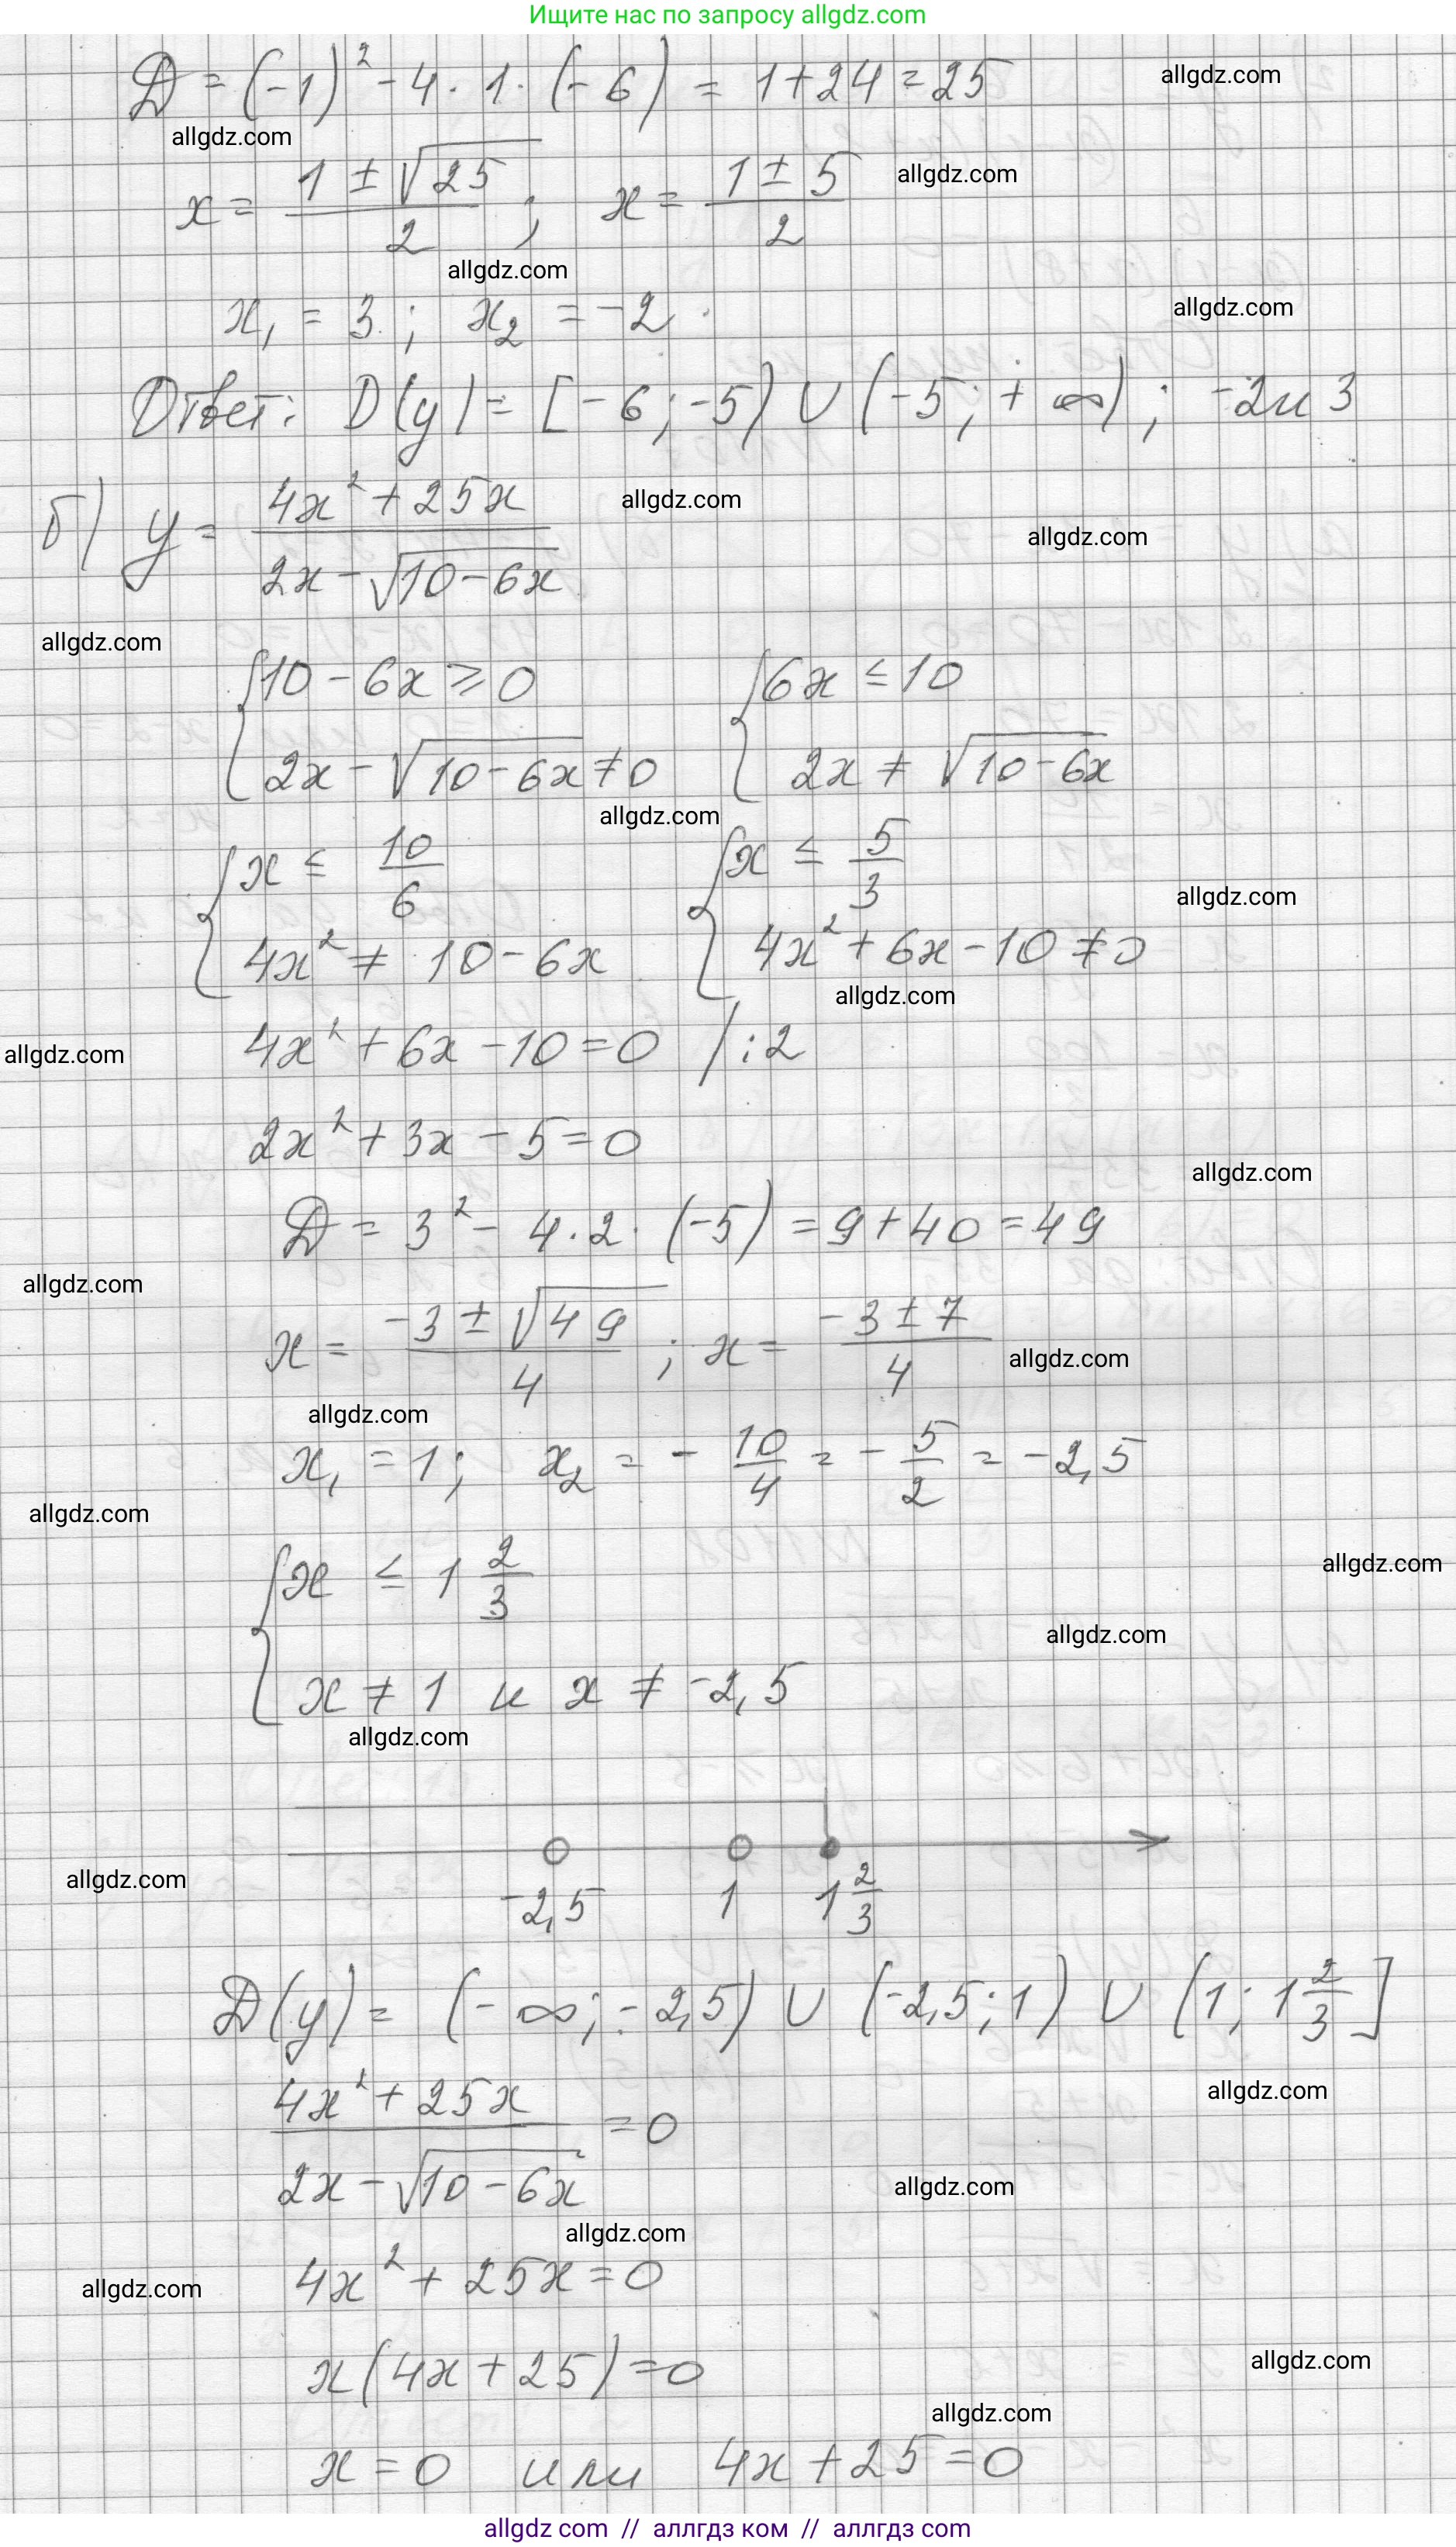 Ищите нас по запросу allgdz.com
D = (-1)² - 4 · 1 · (-6) = 1 + 24 = 25
allgdz.com
allgdz.com
x = (1 ± √25)/2 ; x = (1 ± 5)/2
allgdz.com
allgdz.com
x₁ = 3 ; x₂ = -2 .
allgdz.com
Ответ: D(y) = [-6; -5) ∪ (-5; +∞) ; -2 и 3
б) y = (4x² + 25x)/(2x - √(10-6x))
allgdz.com
allgdz.com
allgdz.com
{10 - 6x ≥ 0 {6x ≤ 10
{2x - √(10-6x) ≠ 0 {2x ≠ √(10-6x)
allgdz.com
{x ≤ 10/6 {x ≤ 5/3
allgdz.com
{4x² ≠ 10 - 6x {4x² + 6x - 10 ≠ 0
allgdz.com
4x² + 6x - 10 = 0 / :2
allgdz.com
2x² + 3x - 5 = 0
allgdz.com
D = 3² - 4 · 2 · (-5) = 9 + 40 = 49
allgdz.com
x = (-3 ± √49)/4 ; x = (-3 ± 7)/4
allgdz.com
allgdz.com
x₁ = 1 ; x₂ = - 10/4 = - 5/2 = -2,5
allgdz.com
{x ≤ 1 2/3
allgdz.com
allgdz.com
{x ≠ 1 и x ≠ -2,5
allgdz.com
allgdz.com
-2,5 1 1 2/3
D(y) = (-∞; -2,5) ∪ (-2,5; 1) ∪ (1; 1 2/3]
allgdz.com
(4x² + 25x)/(2x - √(10-6x)) = 0
allgdz.com
allgdz.com
4x² + 25x = 0
allgdz.com
x(4x + 25) = 0
allgdz.com
allgdz.com
x = 0 или 4x + 25 = 0
allgdz com // аллгдз ком // аллгдз com